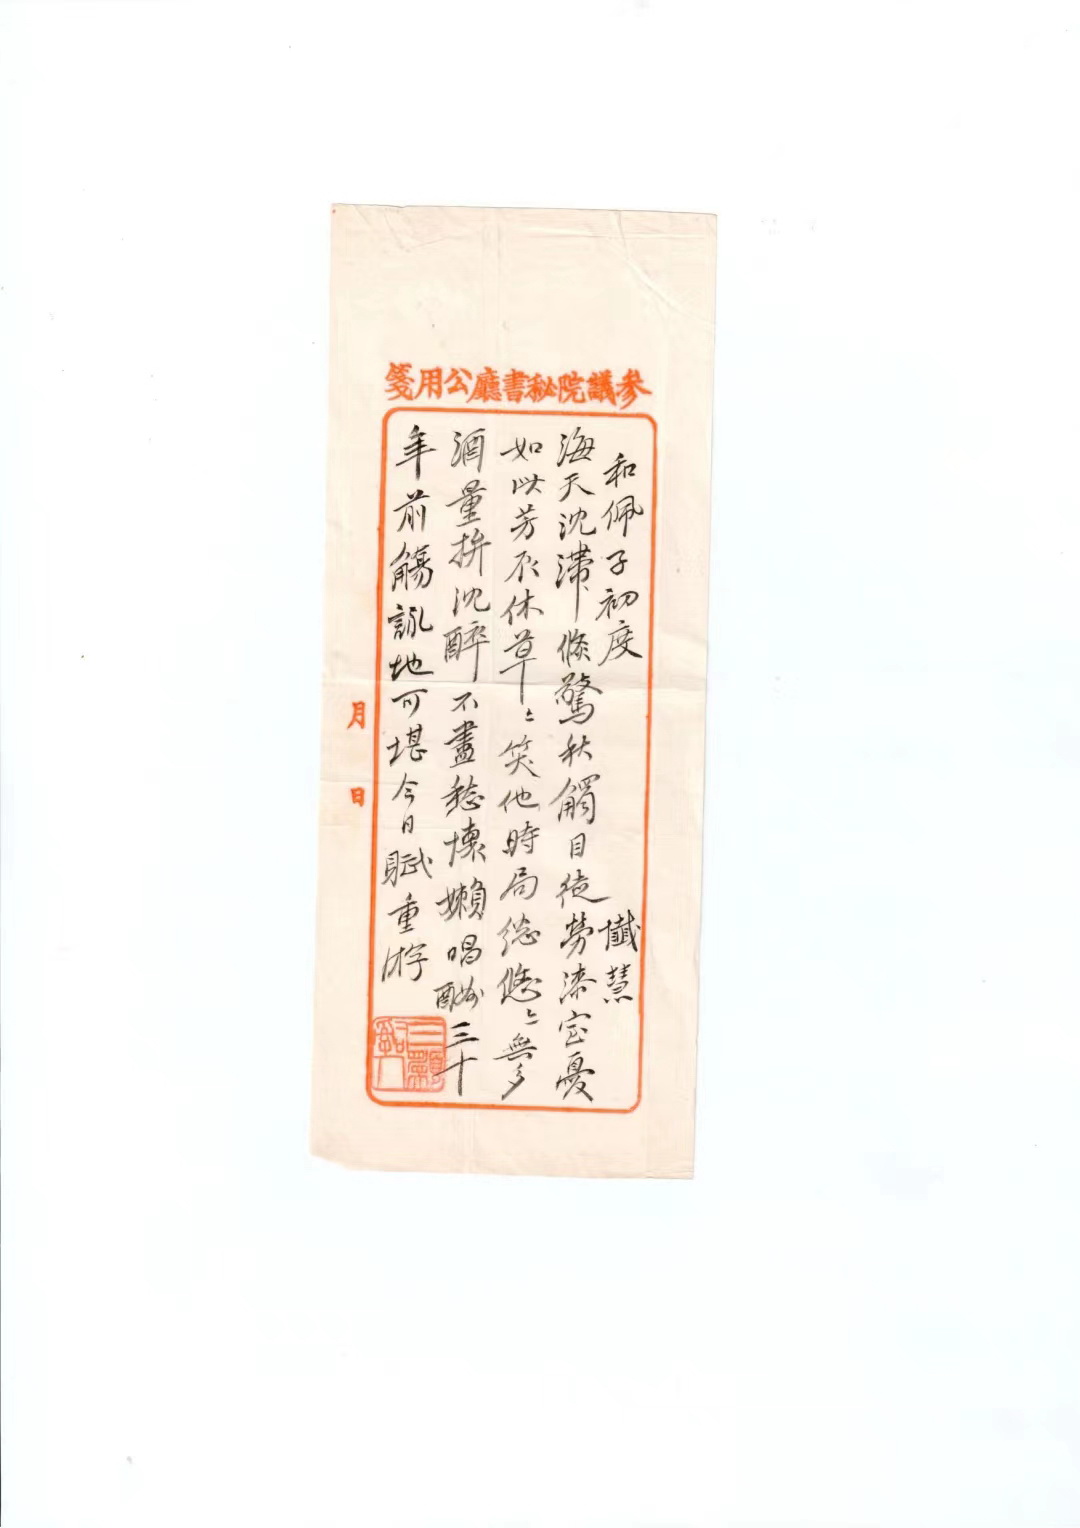 參議院秘書廳公用箋
和佩子初度 懺慧
海天沈滯倏驚秋觸目徒勞漆室憂
如此芳辰休草々笑他時局總悠々無多
酒量拚沈醉不盡愁懷嬾唱酬三十
年前觴詠地可堪今日賦重游
月 日